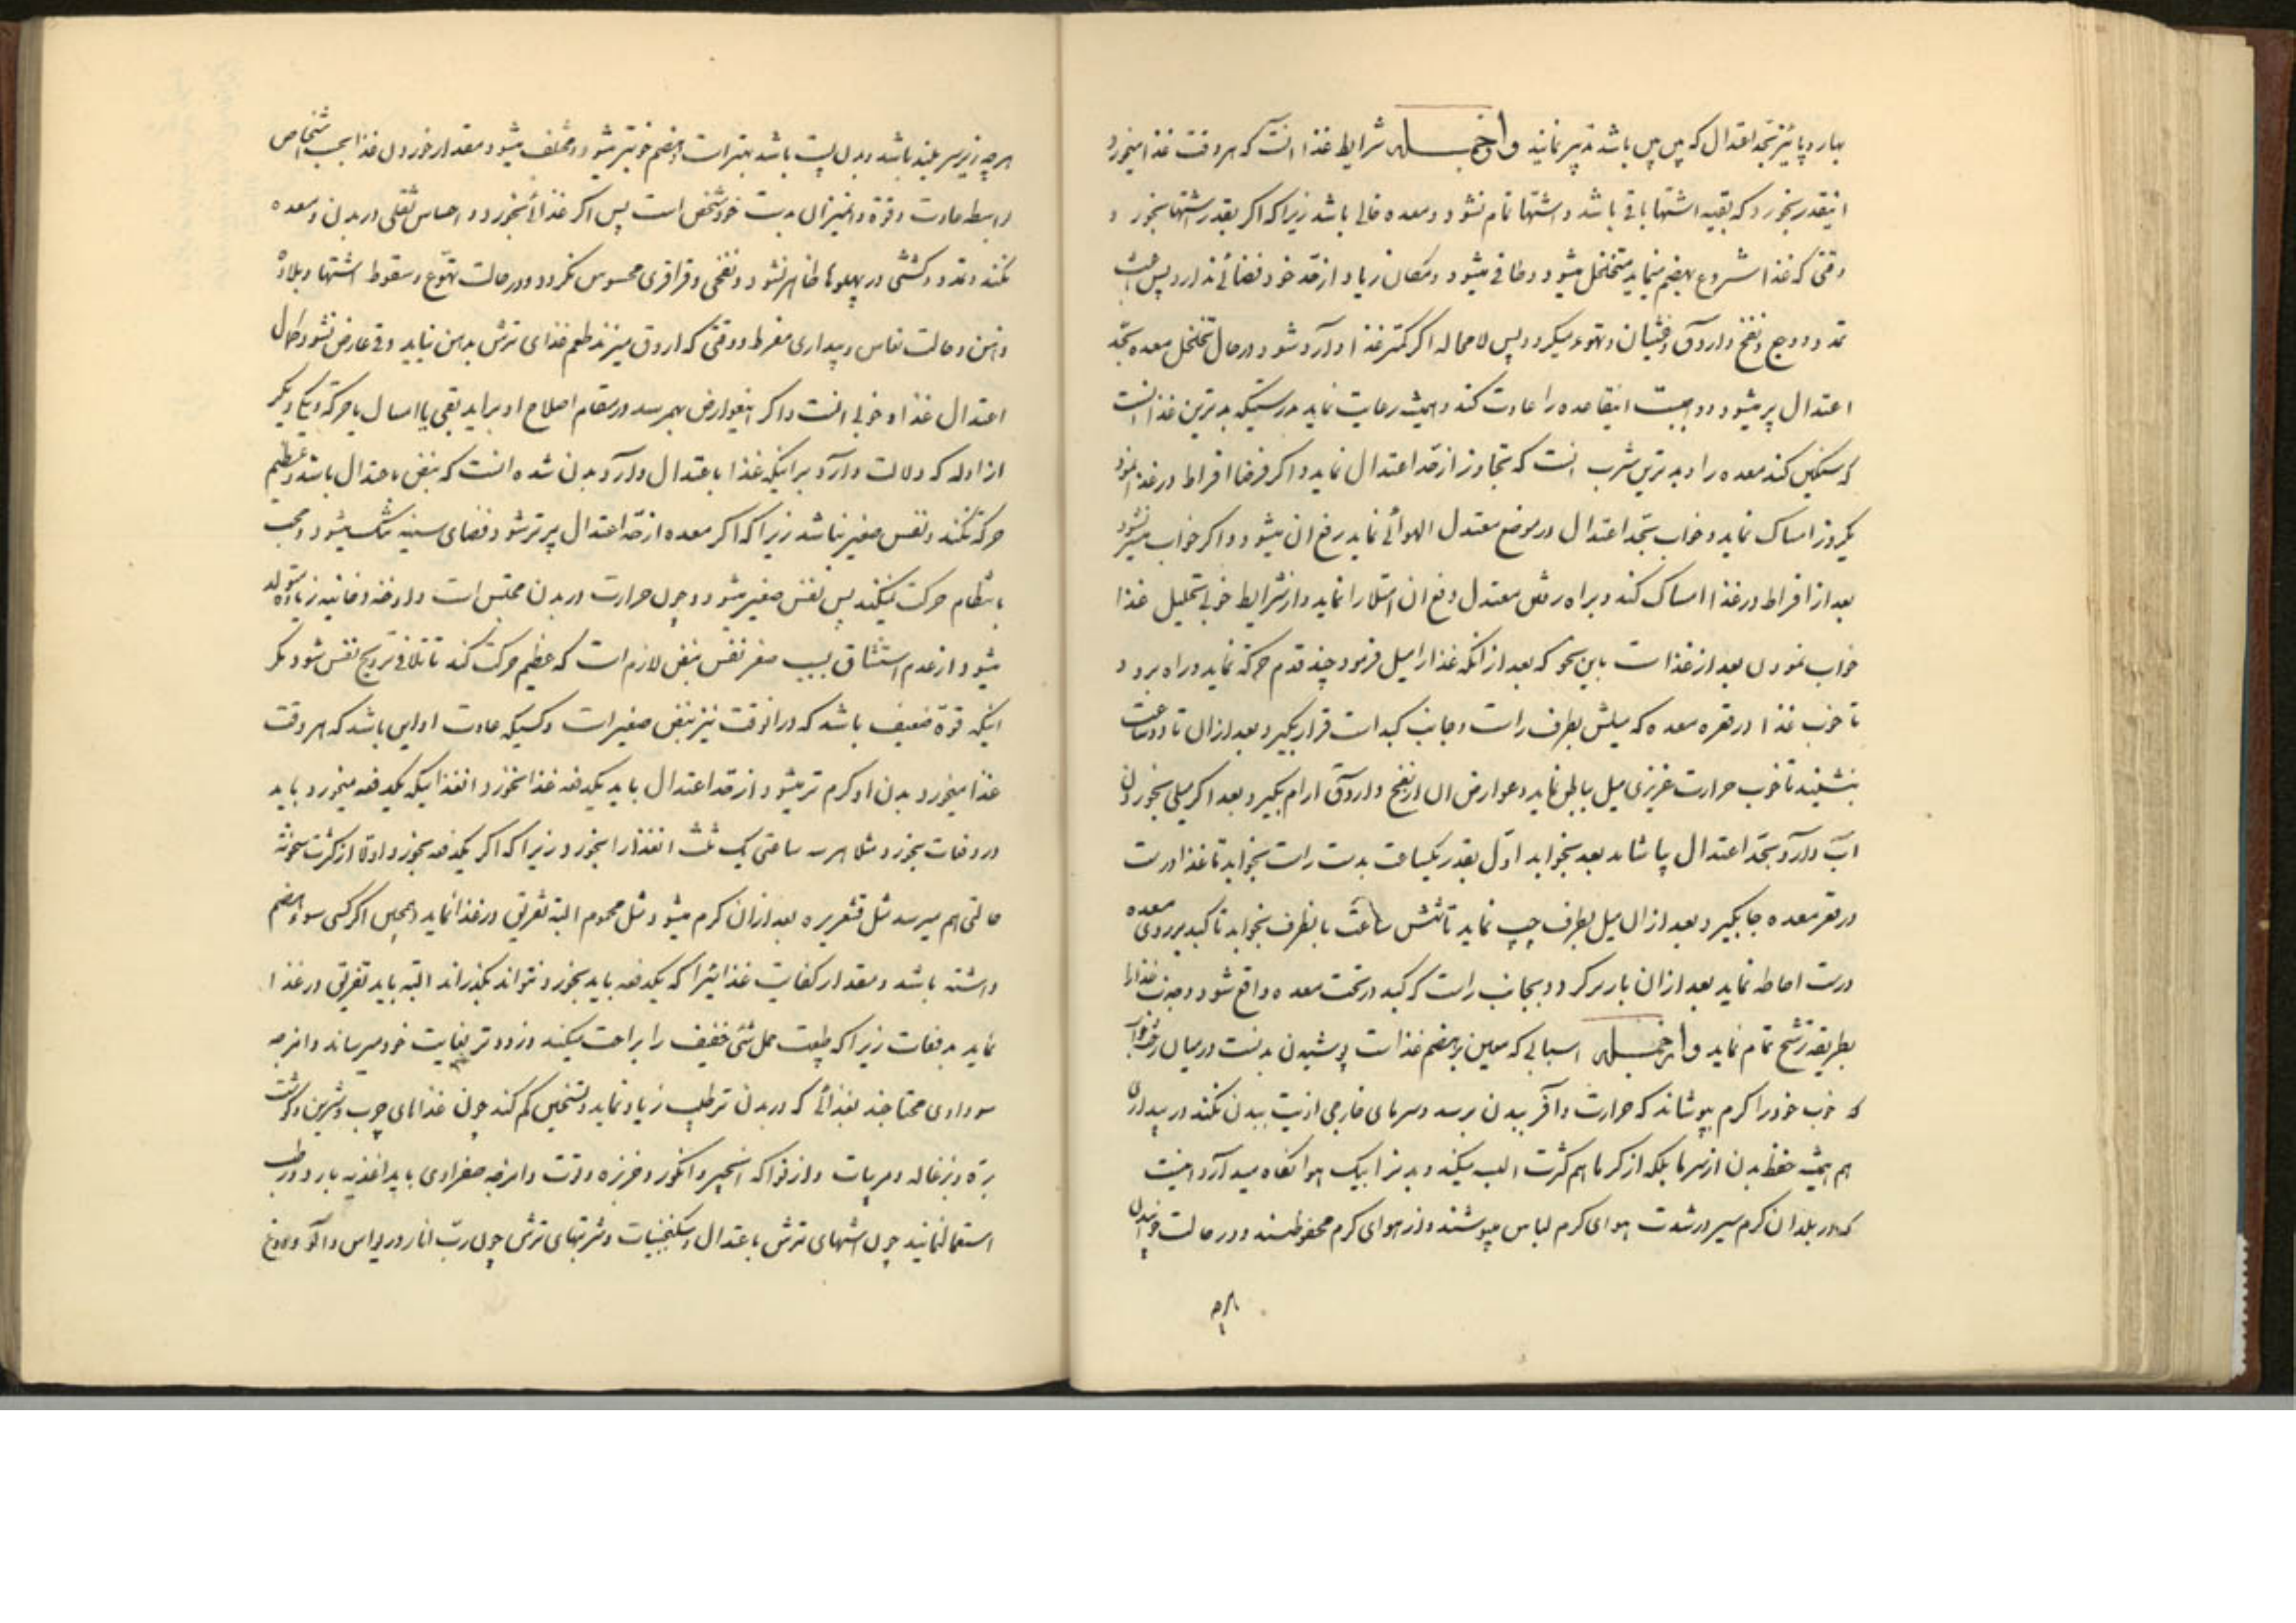 بهار و پائیز بحد اعتدال که بین بین باشد تدبیر نمایند و از جمله شرایط غذا آنست که هر وقت غذا میخورد
اینقدر بخورد که بقیه اشتها باقی باشد و اشتها تمام نشود و معده خالی باشد زیرا که اگر بقدر اشتها بخورد
وقتی که غذا شروع بهضم مینماید متخلخل میشود و طافی میشود و مکان زیاد از قد خود فضائی ندارد پس
تمدد و وجع و نفخ و اروق و غثیان و تهوع میگردد پس لامحاله اگر کمتر غذا وارد شود در حال تخلخل معده بحد
اعتدال پر میشود و واجبست اینقاعده را عادت کند و همیشه رعایت نماید بدرستیکه بدترین غذا آنست
که سنگین کند معده را و بدترین شرب آنست که تجاوز از حد اعتدال نماید و اگر فرضا افراط در غذا نمود
یکروز امساک نماید و خواب بحد اعتدال در موضع معتدل الهوائی نماید رفع آن میشود و اگر خواب میسر نشود
بعد از افراط در غذا امساک کند و براه رفتن معتدل دفع آن امتلا را نماید و از شرایط خوبی تحلیل غذا
خواب نمودن بعد از غذا است باین نحو که بعد از آنکه غذا را میل فرمود چند قدم حرکة نماید و راه برود
تا خوب غذا در قعر معده که میلش بطرف راست و جانب کبد است قرار بگیرد بعد از آن تا دو ساعت
بنشیند تا خوب حرارت غریزی میل بباطن نماید و عوارض آن از نفخ و اروق آرام بگیرد بعد اگر میلی بخوردن
آب دارد بحد اعتدال بیاشامد بعد بخوابد اول بقدر یکساعت بدست راست بخوابد تا غذا درست
در قعر معده جا بگیرد بعد از آن میل بطرف چپ نماید تا شش ساعت بآنطرف بخوابد تا کبد بر روی معده
درست احاطه نماید بعد از آن باز برگردد و بجانب راست که کبد در تحت معده واقع شود و جذب غذا را
بطریقه ترشح تمام نماید و از جمله اسبابی که معین بر هضم غذا است پوشیدن بدنست در میان رختخواب
که خوب خود را گرم بپوشاند که حرارت وافر ببدن برسد و سرمای خارجی اذیت ببدن نکند در بیداری
هم همیشه حفظ بدن از سرما بلکه از گرما هم بکثرت البسه میکند و بدن را بیک هوا نگاه میدارد اینست
که در بلدان گرمسیر در شدت هوای گرم لباس میپوشند و از هوای گرم محفوظند و در حالت خوابیدن
هرچه
هرچه زیر سر بلند باشد و بدن پست باشد بهتر است و هضم خوبتر میشود و مختلف میشود مقدار خوردن غذا بحسب اشخاص
بواسطه عادت و قوة و میزان بدست خود شخص است پس اگر غذائی بخورد و احساس ثقلی در بدن و معده
نکند و تمدد و کششی در پهلوها ظاهر نشود و نفخی و قراقری محسوس نگردد و در حالت تهوع و سقوط اشتها و بلادة
ذهن و حالت نعاس و بیداری مفرط و وقتی که اروق میزند طعم غذای ترش بدهن نیاید و قی عارض نشود کمال
اعتدال غذا و خوبی آنست و اگر اینعوارض بهمرسد در مقام اصلاح او برآید بقی یا اسهال یا حرکة و یکی دیگر
از ادله که دلالت دارد بر اینکه غذا باعتدال وارد بدن شده آنست که نبض باعتدال باشد و عظیم
حرکة نکند و نفس صغیر نباشد زیرا که اگر معده از حد اعتدال پر تر شود فضای سینه تنگ میشود و حجاب
بتنگنا حرکت میکند پس نفس صغیر میشود و چون حرارت در بدن محتبس است و ادخنه دخانیه زیاده متولد
میشود از عدم استنشاق بسبب صغر نفس نبض لازم است که عظیم حرکت کند تا تلافی ترویح نفس شود مگر
اینکه قوة ضعیف باشد که در آنوقت نیز نبض صغیر است و کسیکه عادت او این باشد که هر وقت
غذا میخورد بدن او گرم تر میشود از حد اعتدال باید یکدفعه غذا نخورد آنغذائیکه یکدفعه میخورد باید
در دفعات بخورد مثلا هر سه ساعتی یک ثلث آنغذا را بخورد زیرا که اگر یکدفعه بخورد اولا از کثرت سخونة
حالتی بهم میرسد مثل قشعریره بعد از آن گرم میشود مثل محموم البته تفریق در غذا نماید و همچنین اگر کسی سوء هضم
داشته باشد و مقدار کفایت غذائیرا که یکدفعه باید بخورد نتواند بگذراند البته باید تفریق در غذا
نماید بدفعات زیرا که طبیعت حمل شئی خفیف را براحت میکند و زودتر بغایت خود میرساند و امزجه
سوداوی محتاجند بغذائی که در بدن ترطیب زیاد نماید و تسخین کم کند چون غذاهای چرب و شیرین و گوشت
بره و بزغاله و مربیات و از فواکه انجیر و انگور و خربزه و توت و امزجه صفراوی باید اغذیه بارد و رطب
استعمال نمایند چون آشهای ترش باعتدال و سکنجبینات و شربتهای ترش چون رب انار و ریواس و آلو و دوغ